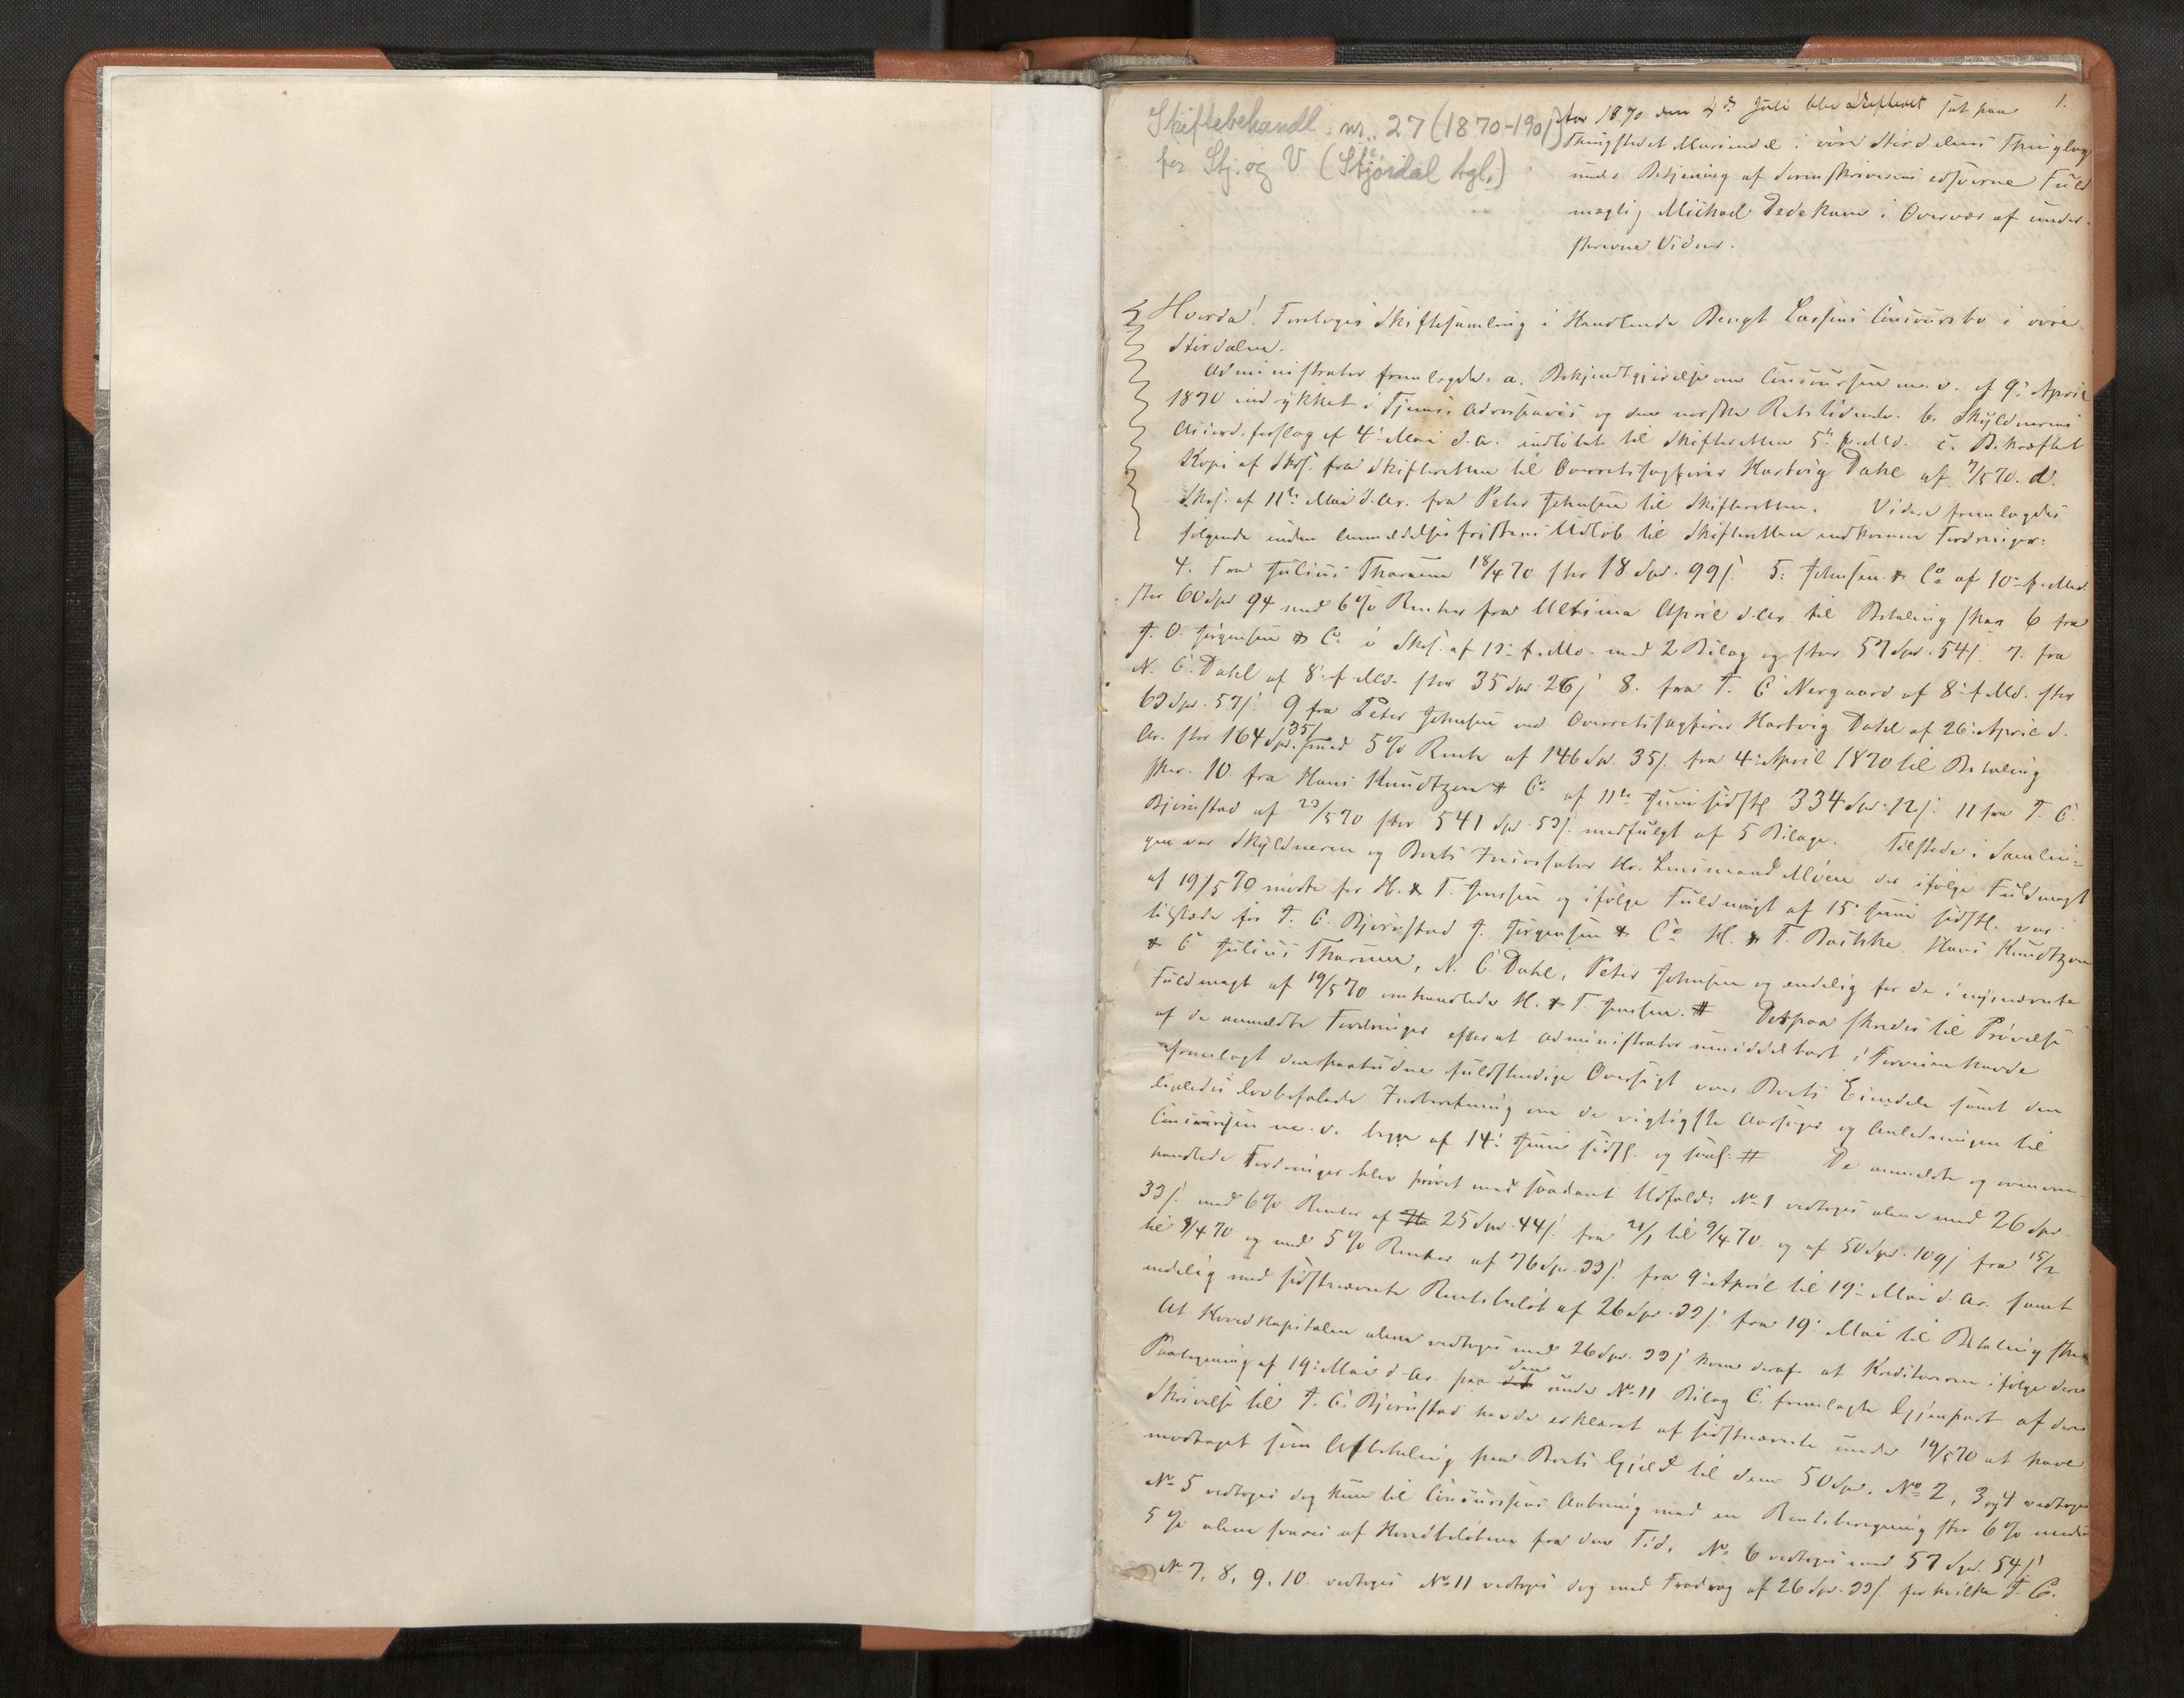 1.
Skiftebehandl. nr. 27 (1870-1901)
for Stj. og V (Stjørdal tgl.)
Aar 1870 den 4de Juli blev Skifteret sat paa
Thingstedet i øvre Størdalens Thinglag
under Betjening af Sorenskriverens edsvorne Fuld
mægtig Michael Dedekam i Overvær af under-
skrevne Vidner.
Hvorda! Foretoges Skiftesamling i Handlende Bengt Larsens Concursbo i øvre
Størdalen.
Administrator fremlagde: a. Bekjendtgjørelse om Concursen m.v. af 9. April
1870 indrykket i Tjems. Adresseavis og den norske Retstidende. b. Skyldnerens
Accord-forslag af 4. Mai d.A. indløbet til Skifteretten 5te s.Md. c. Bekræftet
Kopi af Skr. fra Skifteretten til Overretssagfører Hartvig Dahl af 7/5 70. d.
Skr. af 11te Mai d.Ar. fra Peter Johnsen til Skifteretten. Videre fremlagdes
følgende inden Anmeldelsesfristens Udløb til Skifteretten indkomne Fordringer:
4. Fra Julius Thorsen 18/4 70 stor 18 Spd. 99 s. 5: Johnsen & Co af 10. f. Md.
stor 60 Spd 94 med 6 % Renter fra Ultimo April d.Ar. til Betaling skeer 6 fra
J. O. Jørgensen & Co i Skr. af f. Md. med 2 Bilag og stor 57 Spd. 54 s. 7. fra
N. C. Dahl af 8. f. Md. stor 35 Spd. 26 s 8. fra T. C Nergaard af 8. f. Md. stor
Spd. 57 s. 9 fra Peter Johnsen ved Overretssagfører Hartvig Dahl af 26. April d.
Ar. stor 164 Spd. 35 s med 5 % Rente af 146 Spd. 35 s. fra 4. April 1870 til Betaling
skeer. 10. fra Hans Knudtzon & Co af 11te Juni sidstl. 334 Spd. 12 s. 11 fra T. C.
Bjørnstad af /5 70 stor 541 Spd. s. medfulgt af 5 Bilage. Tilstede i Samlin-
gen var Skyldneren og Boets Incassator Hr. Lensmand Moen der ifølge Fuldmagt
af 19/5 70 mødte for H. & T. Jenssen og ifølge Fuldmagt af 15. Juni sidstl. var
tilstede for T. C. Bjørnstad J. Jørgensen & Co H. & F. Bachke Hans Knudtzon
& Co Julius Thorsen, N. C Dahl, Peter Johnsen og endelig for de i nysnævnte
Fuldmagt af 19/5 70 omhandlede H. & T. Jenssen. # Derpaa skredes til Prøvelse
af de anmeldte Fordringer efterat Administrator umiddelbart i Forveien havde
fremlagt den paabudne fuldstændige Oversigt over Boets Eiendele samt den
ligeledes lovbefalede Indberetning om de vigtigste Aarsager og Anledningen til
Concursen m.v. begge af 14. Juni sidstl. og #. De anmeldte og ovenom-
handlede Fordringer blev prøvet med saadant Udfald: No 1 vedtoges alene med 26 Spd.
33 s. med 6 % Renter af 25 Spd. 44 s. fra /1 til 9/4 70 og af 50 Spd. 109 s fra 15/2
til 9/4 70 og med 5 % Renter af 76 Spd. 33 s. fra 9. April til 19. Mai d. Ar. samt
endelig med sidstnævnte Rentebeløb af 26 Spd. 33 s. fra 19. Mai til Betaling skeer
At Hovedkapitalen alene vedtoges med 26 Spd. 33 s kom deraf at Kreditorerne ifølge deres
Paategning af 19. Mai d. Ar. paa den under No 11 Bilag C. fremlagte Gjenpart af deres
Skrivelse til T. C. Bjørnstad havde erklæret af sidstnævnte under 19/5 70 at have
modtaget som Afbetaling paa Boets Gjæld til dem 50 Spd. No 2, 3 og 4 vedtoges
No 5 vedtoges dog kun til Concursens Aabning med en Renteberegning stor 6 % medens
5 % alene svares af Hovedbeløbene fra den Tid. No 6 vedtoges med 57 Spd. 54 s.
No 7, 8, 9, 10 vedtoges No 11 vedtoges dog med Fradrag af 26 Spd. 33 s. for hvilke T. C.